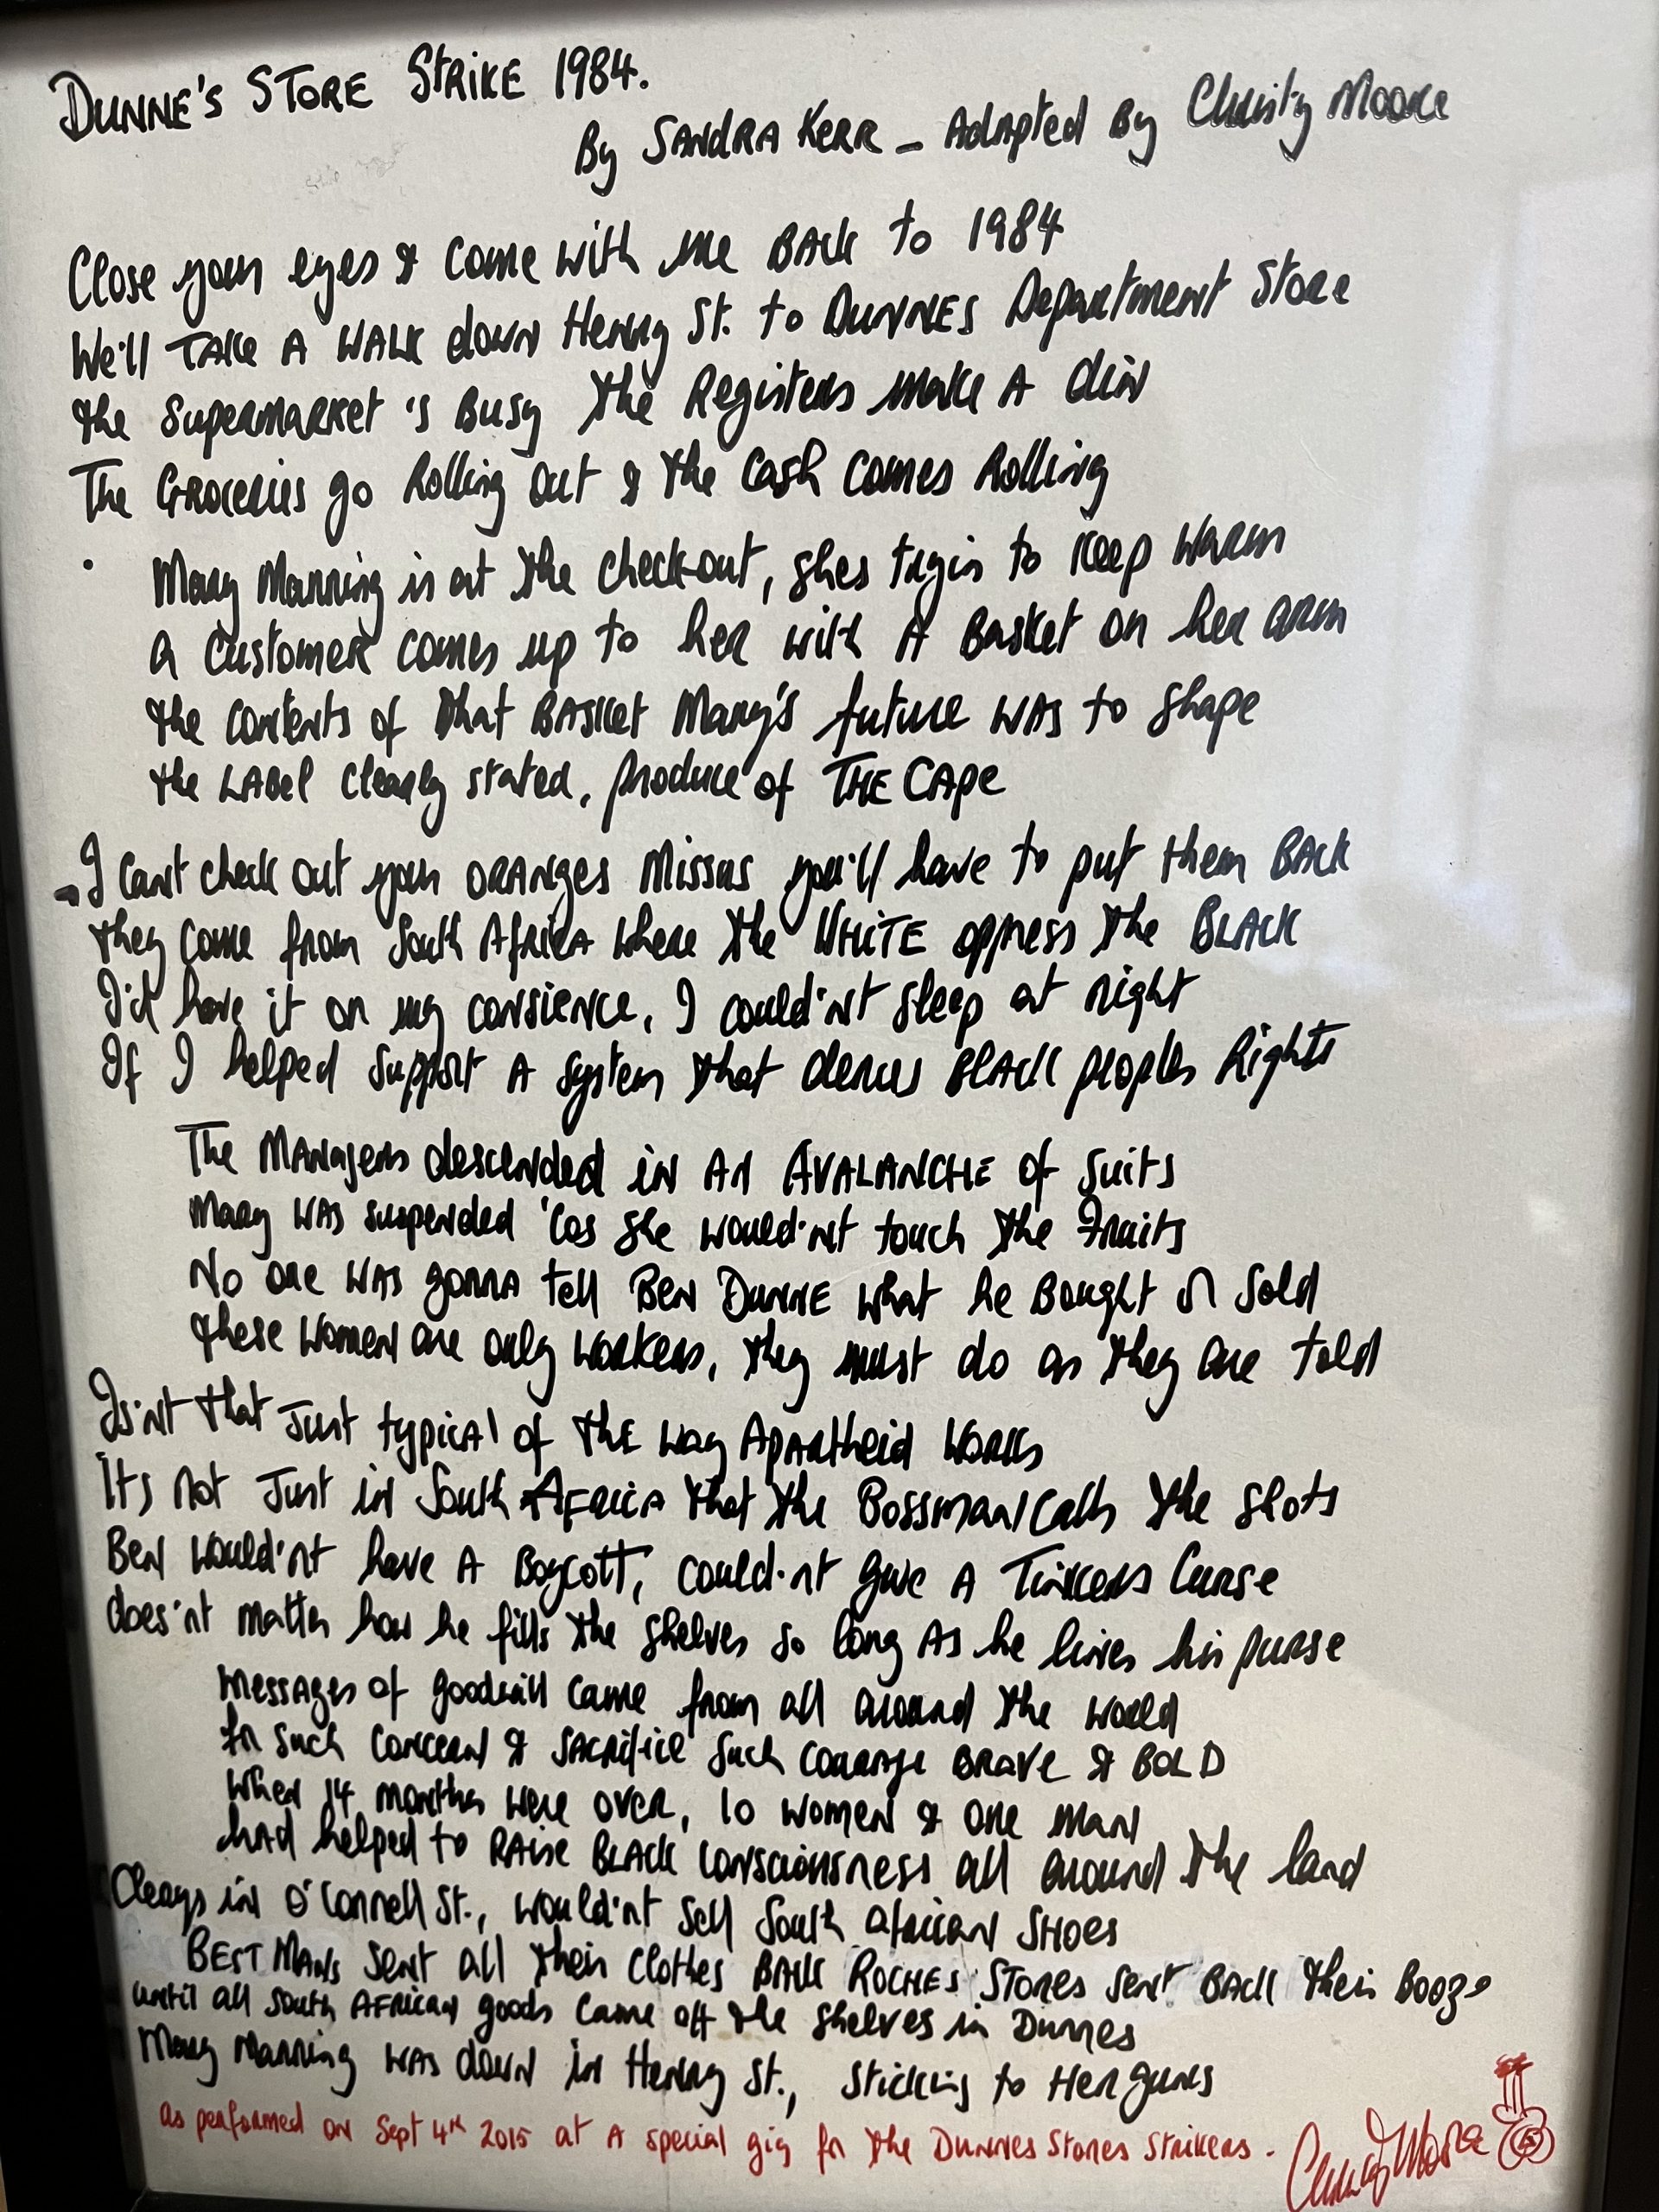 DUNNE'S STORE STRIKE 1984.
By SANDRA KERR - Adapted By Christy Moore
Close your eyes & come with me BACK to 1984
We'll TAKE A WALK down Henry St. to DUNNES Department Store
the Supermarket 's Busy the Registers make A din
The Groceries go Rolling out & the Cash comes Rolling
Mary Manning is at the checkout, shes tryin to keep warm
a customer comes up to her with A Basket on her arm
the contents of that BASKET Mary's future WAS to shape
the LABel clearly stated, produce of THE CApe
- I cant check out your ORANGES Missus you'll have to put them BACK
they come from South Africa where the WHITE oppress the BLACK
I'd have it on my consience, I could'nt sleep at night
If I helped support A system that denies BLACK peoples Rights
The MANAgers descended in AN AVALANCHE of suits
Mary WAS suspended 'cos she would'nt touch the Fruits
No one WAS gonna tell Ben DUNNE what he Bought n sold
these women are only workers, they must do as they are told
Is'nt that Just typical of THE way Apartheid works
It's not Just in South AFRICA that the Bossman calls the shots
Ben would'nt have A Boycott, could'nt give A Tinkers Curse
does'nt matter how he fills the shelves so long As he lines his purse
Messages of goodwill came from all around the world
for such concern & sacrifice such courage BRAVE & BOLD
when 14 months were over, 10 women & one man
had helped to RAise BLACK consciousness all around the land
Clerys in O'Connell St., would'nt sell South African SHOES
BEST MANs sent all their clothes BACK ROCHES STORES sent BACK their Booze
until all South AFRICAN goods came off the shelves in Dunnes
Mary Manning WAS down in Henry St., Sticking to Her guns
as performed on Sept 4th 2015 at A special gig for the DUNNES Stores Strikers -
Christy Moore